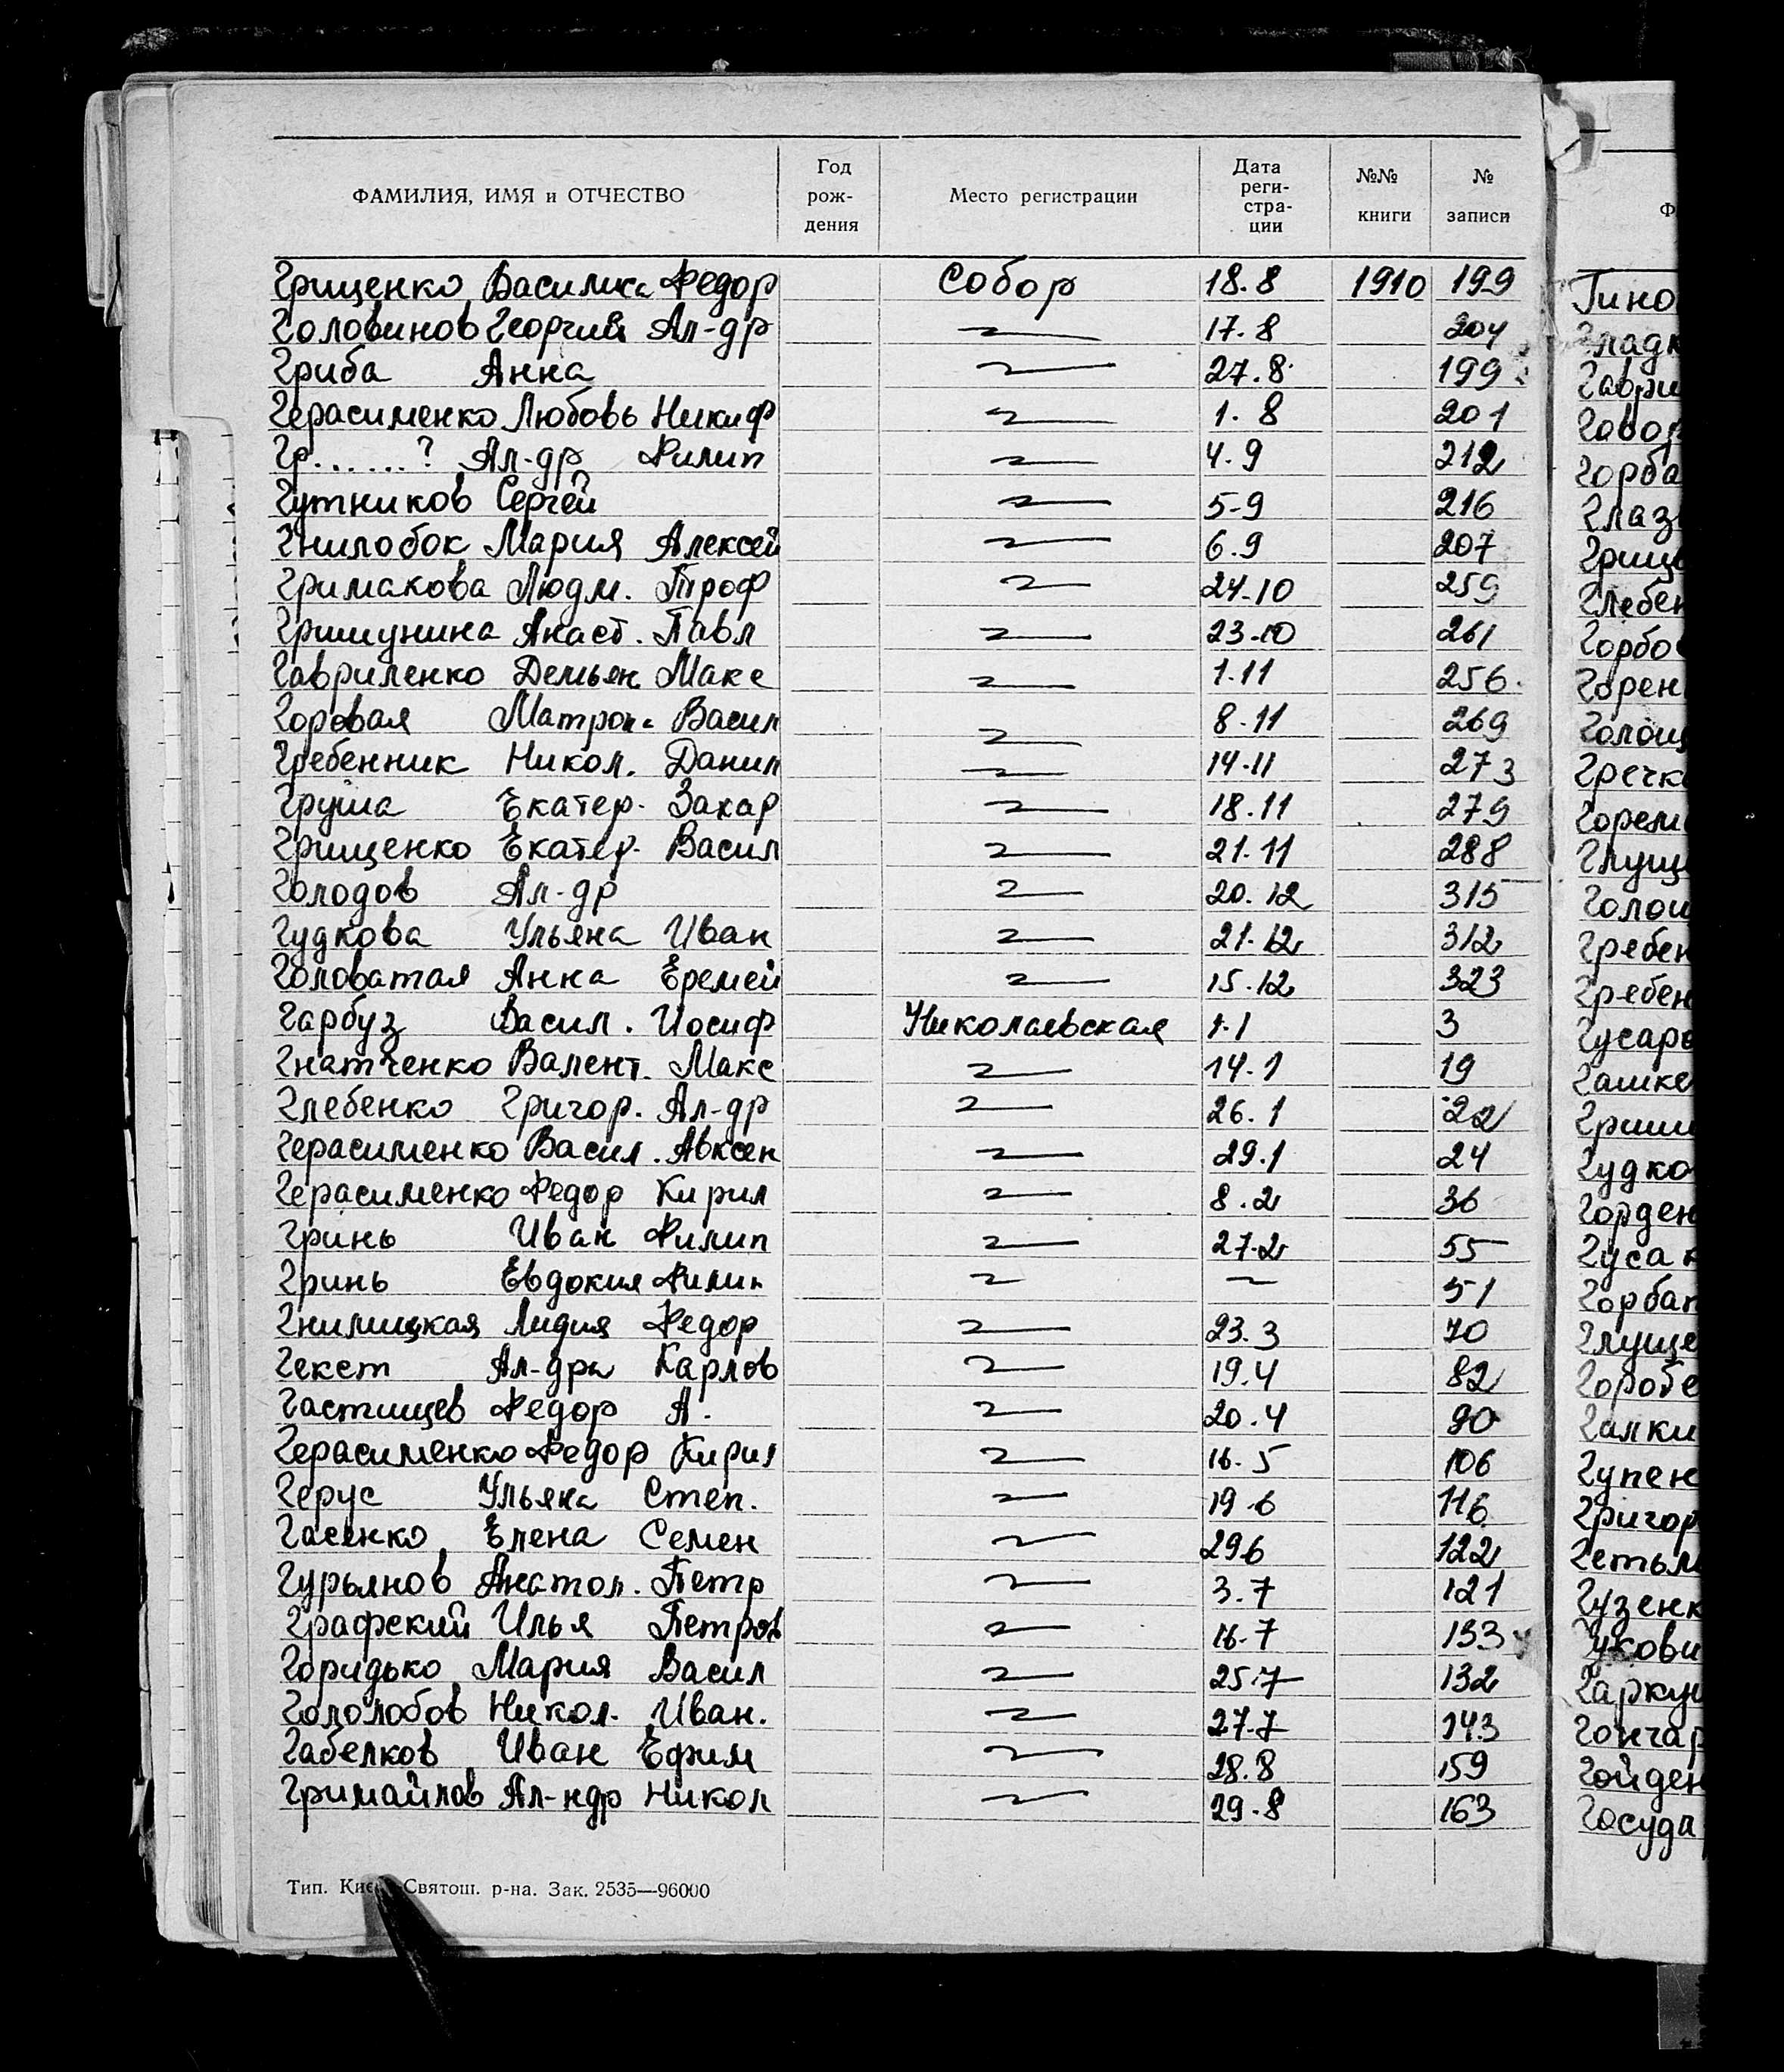 ФАМИЛИЯ, ИМЯ и ОТЧЕСТВО Год рож- дения Место регистрации Дата реги- стра- ции №№ книги № записи
Грищенко Василиса Федор Собор 18.8 1910 199
Головинов Георгий Ал-др 17.8 204
Гриба Анна 27.8 199
Герасименко Любовь Никиф 1.8 201
Гр......? Ал-др Филип 4.9 212
Гутников Сергей 5-9 216
Гнилобок Мария Алексей 6.9 207
Гримакова Людм. Троф 24-10 259
Гришунина Анаст. Павл 23-10 261
Гавриленко Демьян Макс 1.11 256
Горовая Матрона Васил 8-11 269
Гребенник Никол. Данил 14-11 273
Груша Екатер. Захар 18.11 279
Грищенко Екатер. Васил 21.11 288
Голодов Ал-др 20.12 315
Гудкова Ульяна Иван 21.12 312
Головатая Анна Еремей 15.12 323
Гарбуз Васил. Иосиф Николаевская 1.1 3
Гнатченко Валент. Макс 14.1 19
Глебенко Григор. Ал-др 26.1 22
Герасименко Васил. Авксен 29.1 24
Герасименко Федор Кирил 8.2 36
Гринь Иван Филип 27.2 55
Гринь Евдокия Филип 51
Гнилицкая Лидия Федор 23.3 70
Гекст Ал-дра Карлов 19.4 82
Гастищев Федор А. 20.4 90
Герасименко Федор Кирил 16.5 106
Герус Ульяна Степ. 19.6 116
Гасенко Елена Семен 29.6 122
Гурьянов Анатол. Петр 3.7 121
Графский Илья Петров 16.7 133
Горидько Мария Васил 25.7 132
Гололобов Никол. Иван. 27.7 143
Габелков Иван Ефим 28.8 159
Гримайлов Ал-ндр Никол 29.8 163
Святош. р-на. Зак. 2535—96000